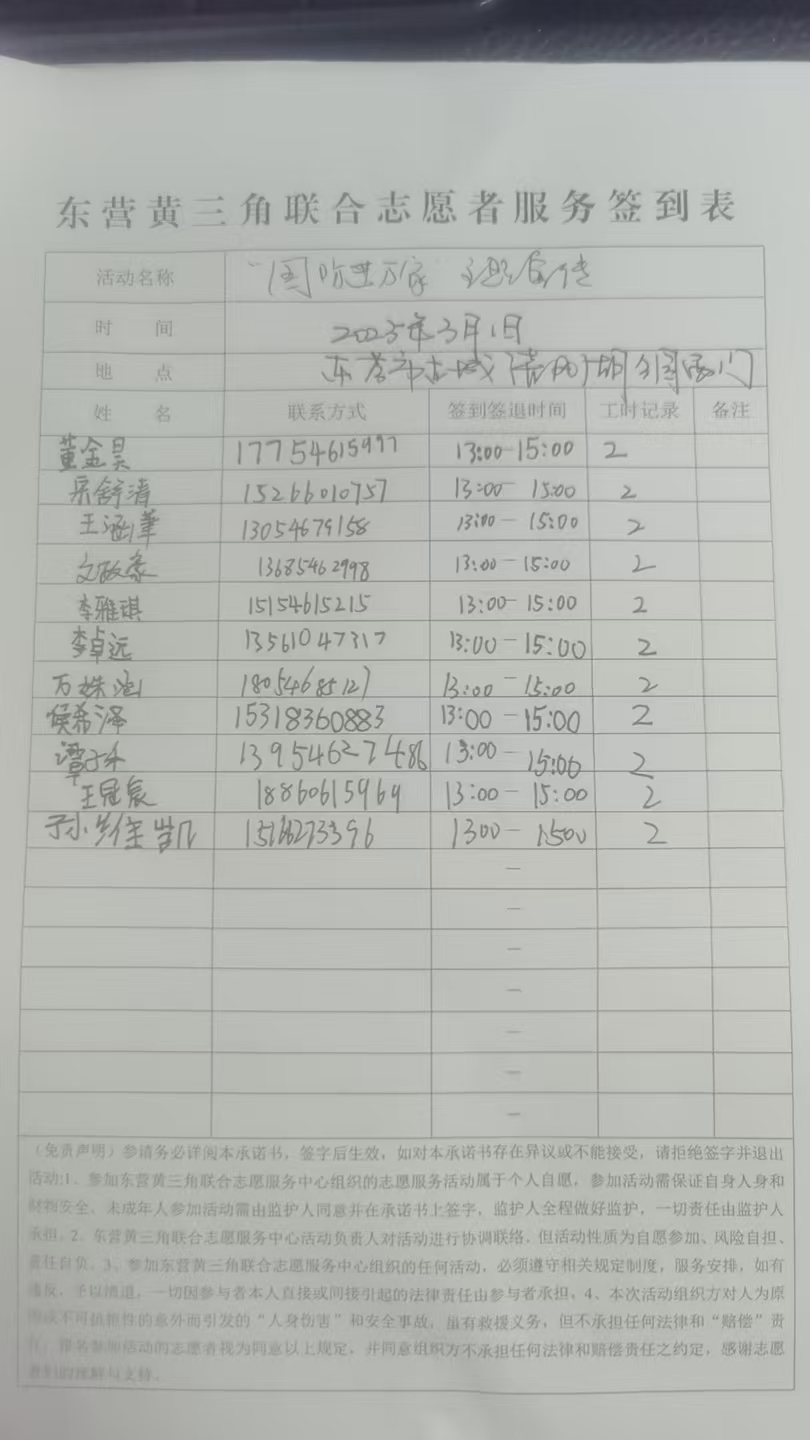 东营黄三角联合志愿者服务签到表
活动名称 “国防进万家 主题宣传
时 间 2025年3月1日
地 点 东营市古城清风湖公园西门
姓 名 联系方式 签到签退时间 工时记录 备注
董金昊 17754615997 13:00-15:00 2
舒清 15266010757 13:00-15:00 2
王涵 13054679158 13:00-15:00 2
文政豪 13685462998 13:00-15:00 2
李雅琪 15154615215 13:00-15:00 2
李卓远 13561047317 13:00-15:00 2
万姝 18054685127 13:00-15:00 2
侯希泽 15318360883 13:00-15:00 2
谭子 13954627486 13:00-15:00 2
王冠宸 18860615969 13:00-15:00 2
1300-1500 2
—
—
—
—
—
—
—
（免责声明）参请务必详阅本承诺书，签字后生效，如对本承诺书存在异议或不能接受，请拒绝签字并退出
活动:1、参加东营黄三角联合志愿服务中心组织的志愿服务活动属于个人自愿，参加活动需保证自身人身和
财物安全，未成年人参加活动需由监护人同意并在承诺书上签字，监护人全程做好监护，一切责任由监护人
承担。2、东营黄三角联合志愿服务中心活动负责人对活动进行协调联络，但活动性质为自愿参加、风险自担、
责任自负。3、参加东营黄三角联合志愿服务中心组织的任何活动，必须遵守相关规定制度，服务安排，如有
违反，予以清退，一切因参与者本人直接或间接引起的法律责任由参与者承担。4、本次活动组织方对人为原
因或不可抗拒性的意外而引发的“人身伤害”和安全事故，虽有救援义务，但不承担任何法律和“赔偿”责
任，报名参加活动的志愿者视为同意以上规定，并同意组织方不承担任何法律和赔偿责任之约定，感谢志愿
者们的理解与支持。